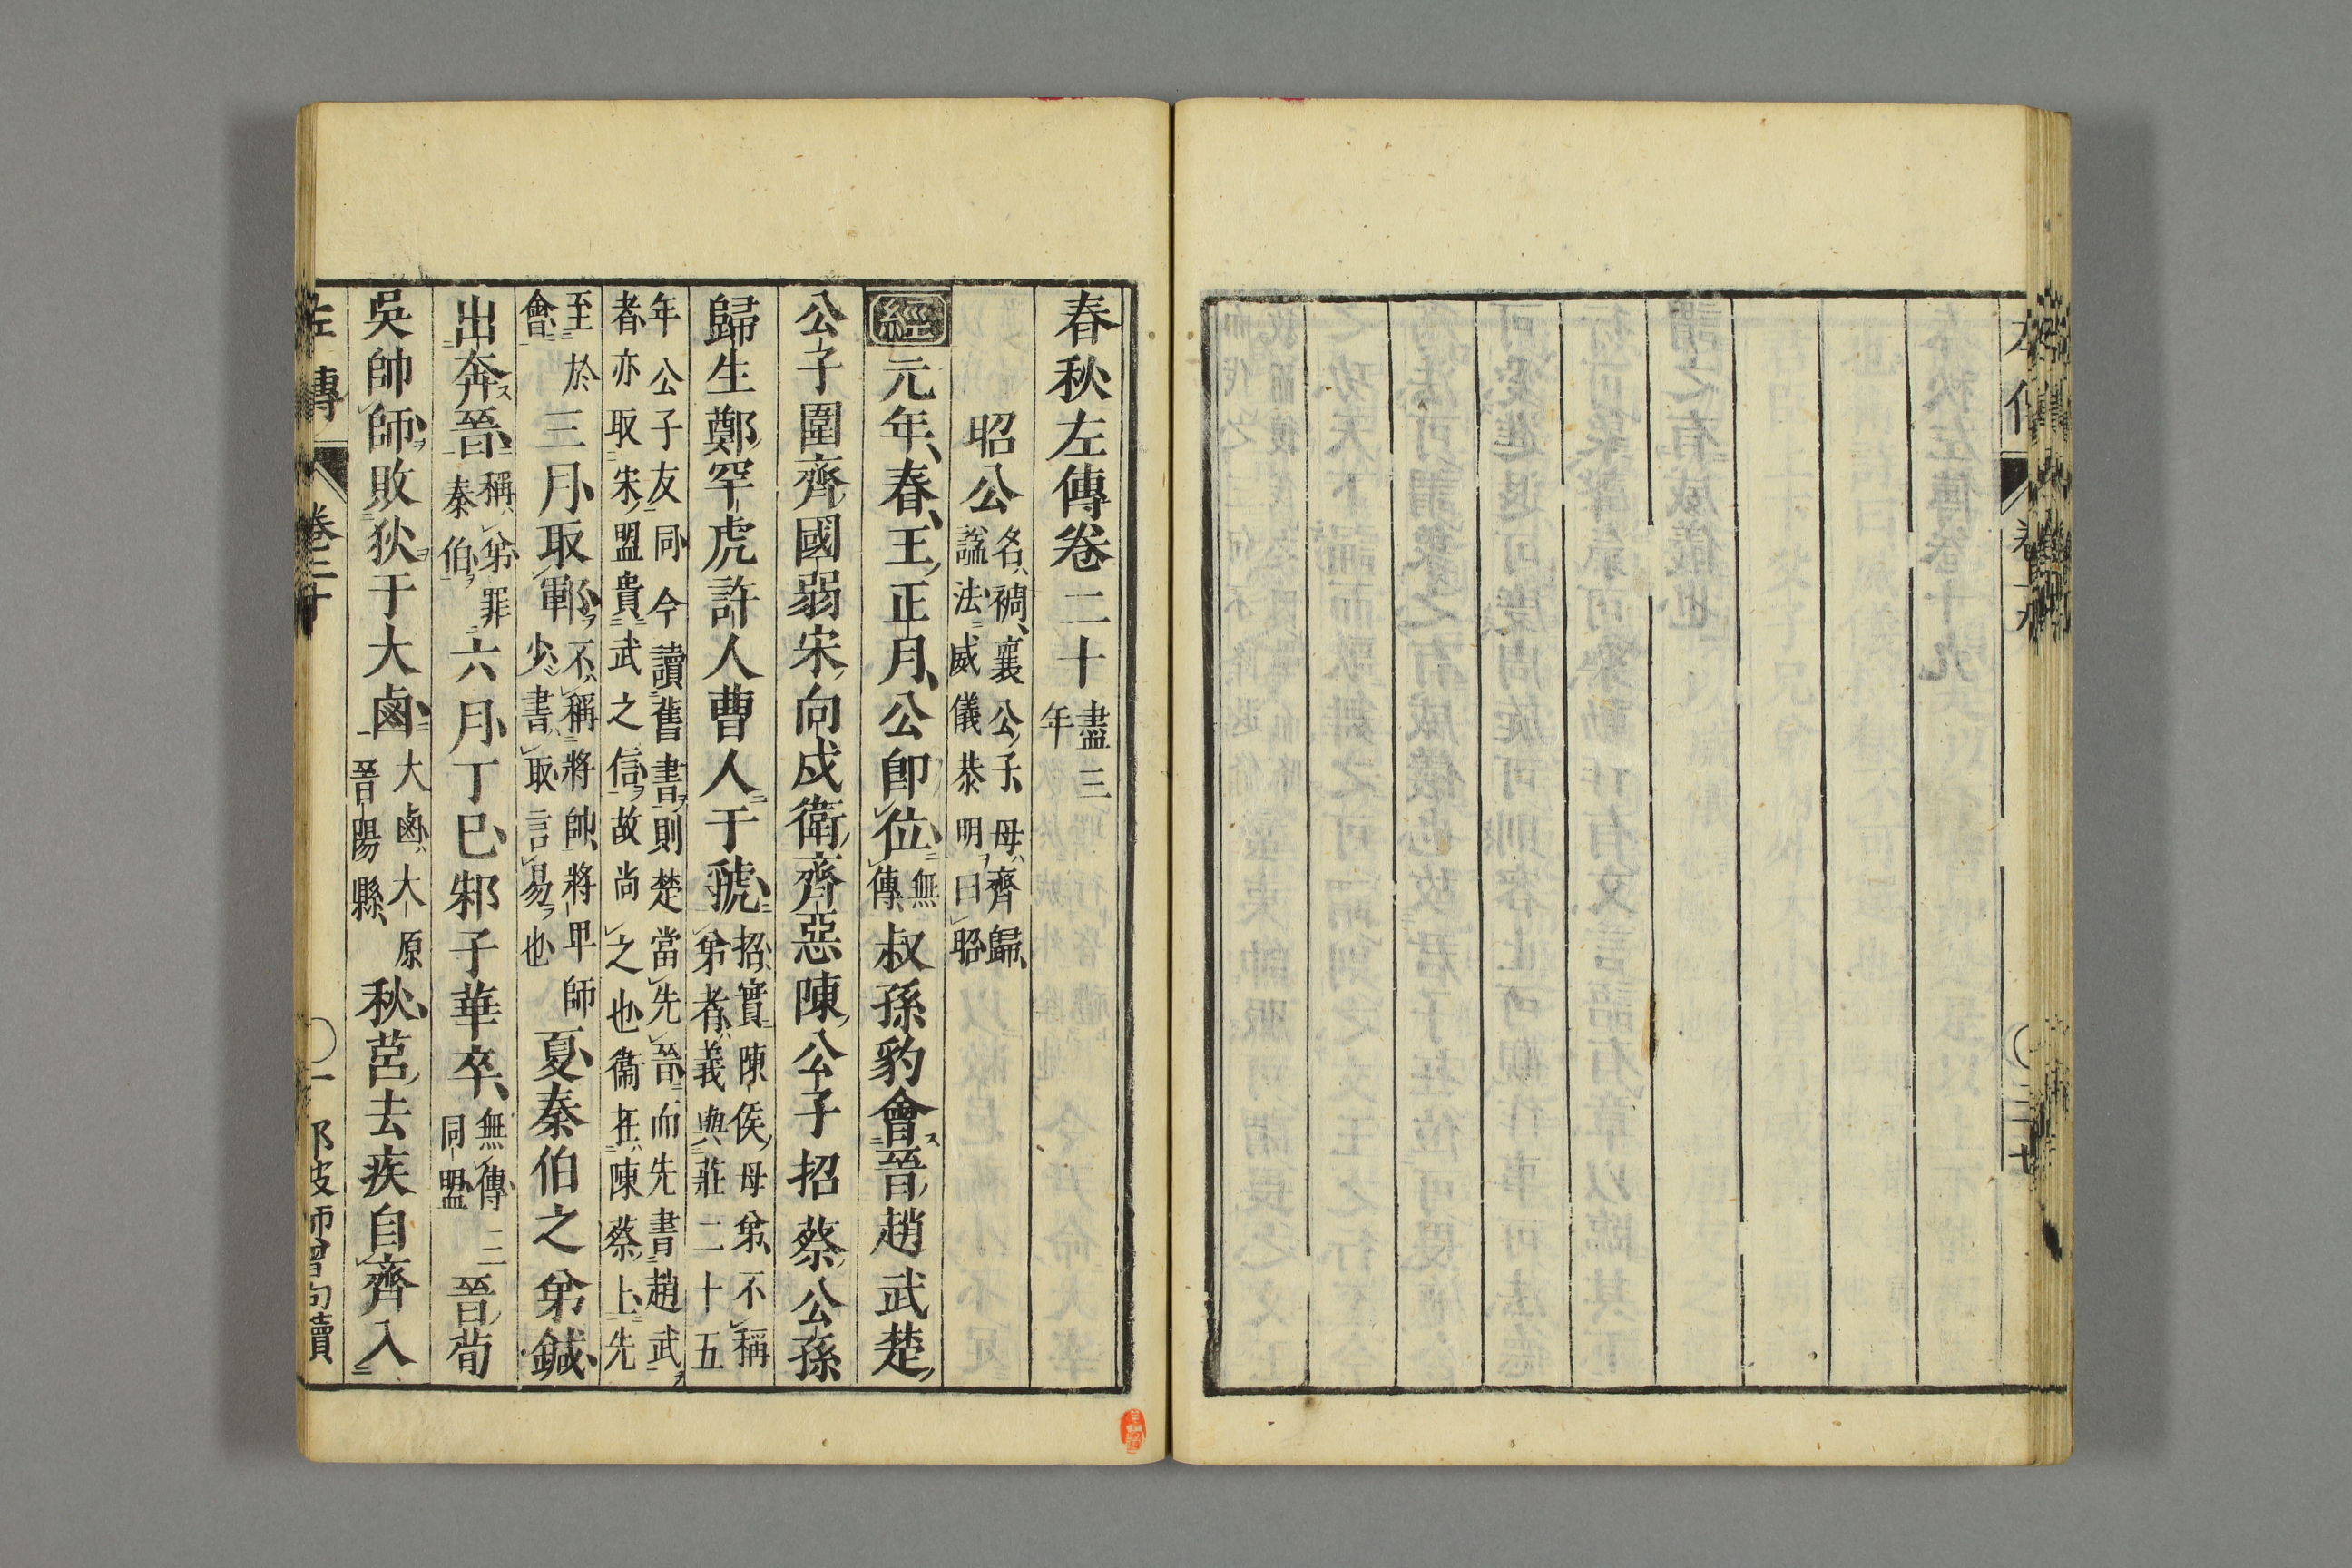 春秋左傳卷二十 盡三年
昭公 名裯襄公子母齊歸謚法威儀恭明曰昭
經元年春王正月公卽位 無傳 叔孫豹會晉趙武楚
公子圍齊國弱宋向戌衛齊惡陳公子招蔡公孫
歸生鄭罕虎許人曹人于虢 招實陳侯母弟不稱弟者義與莊二十五
年公子友同今讀舊書則楚當先晉而先書趙武者亦取宋盟貴武之信故尚之也衞在陳蔡上先
至於會 三月取鄆 不稱將帥將卑師少書取言易也 夏秦伯之弟鍼
出奔晉 稱弟罪秦伯 六月丁巳邾子華卒 無傳三同盟 晉荀
吳帥師敗狄于大鹵 大鹵大原晉陽縣 秋莒去疾自齊入
左傳 卷二十 ○一 那波師曾句讀